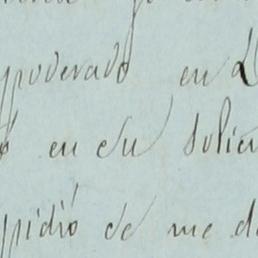 poderado en
ó en su solici
pidió se me d